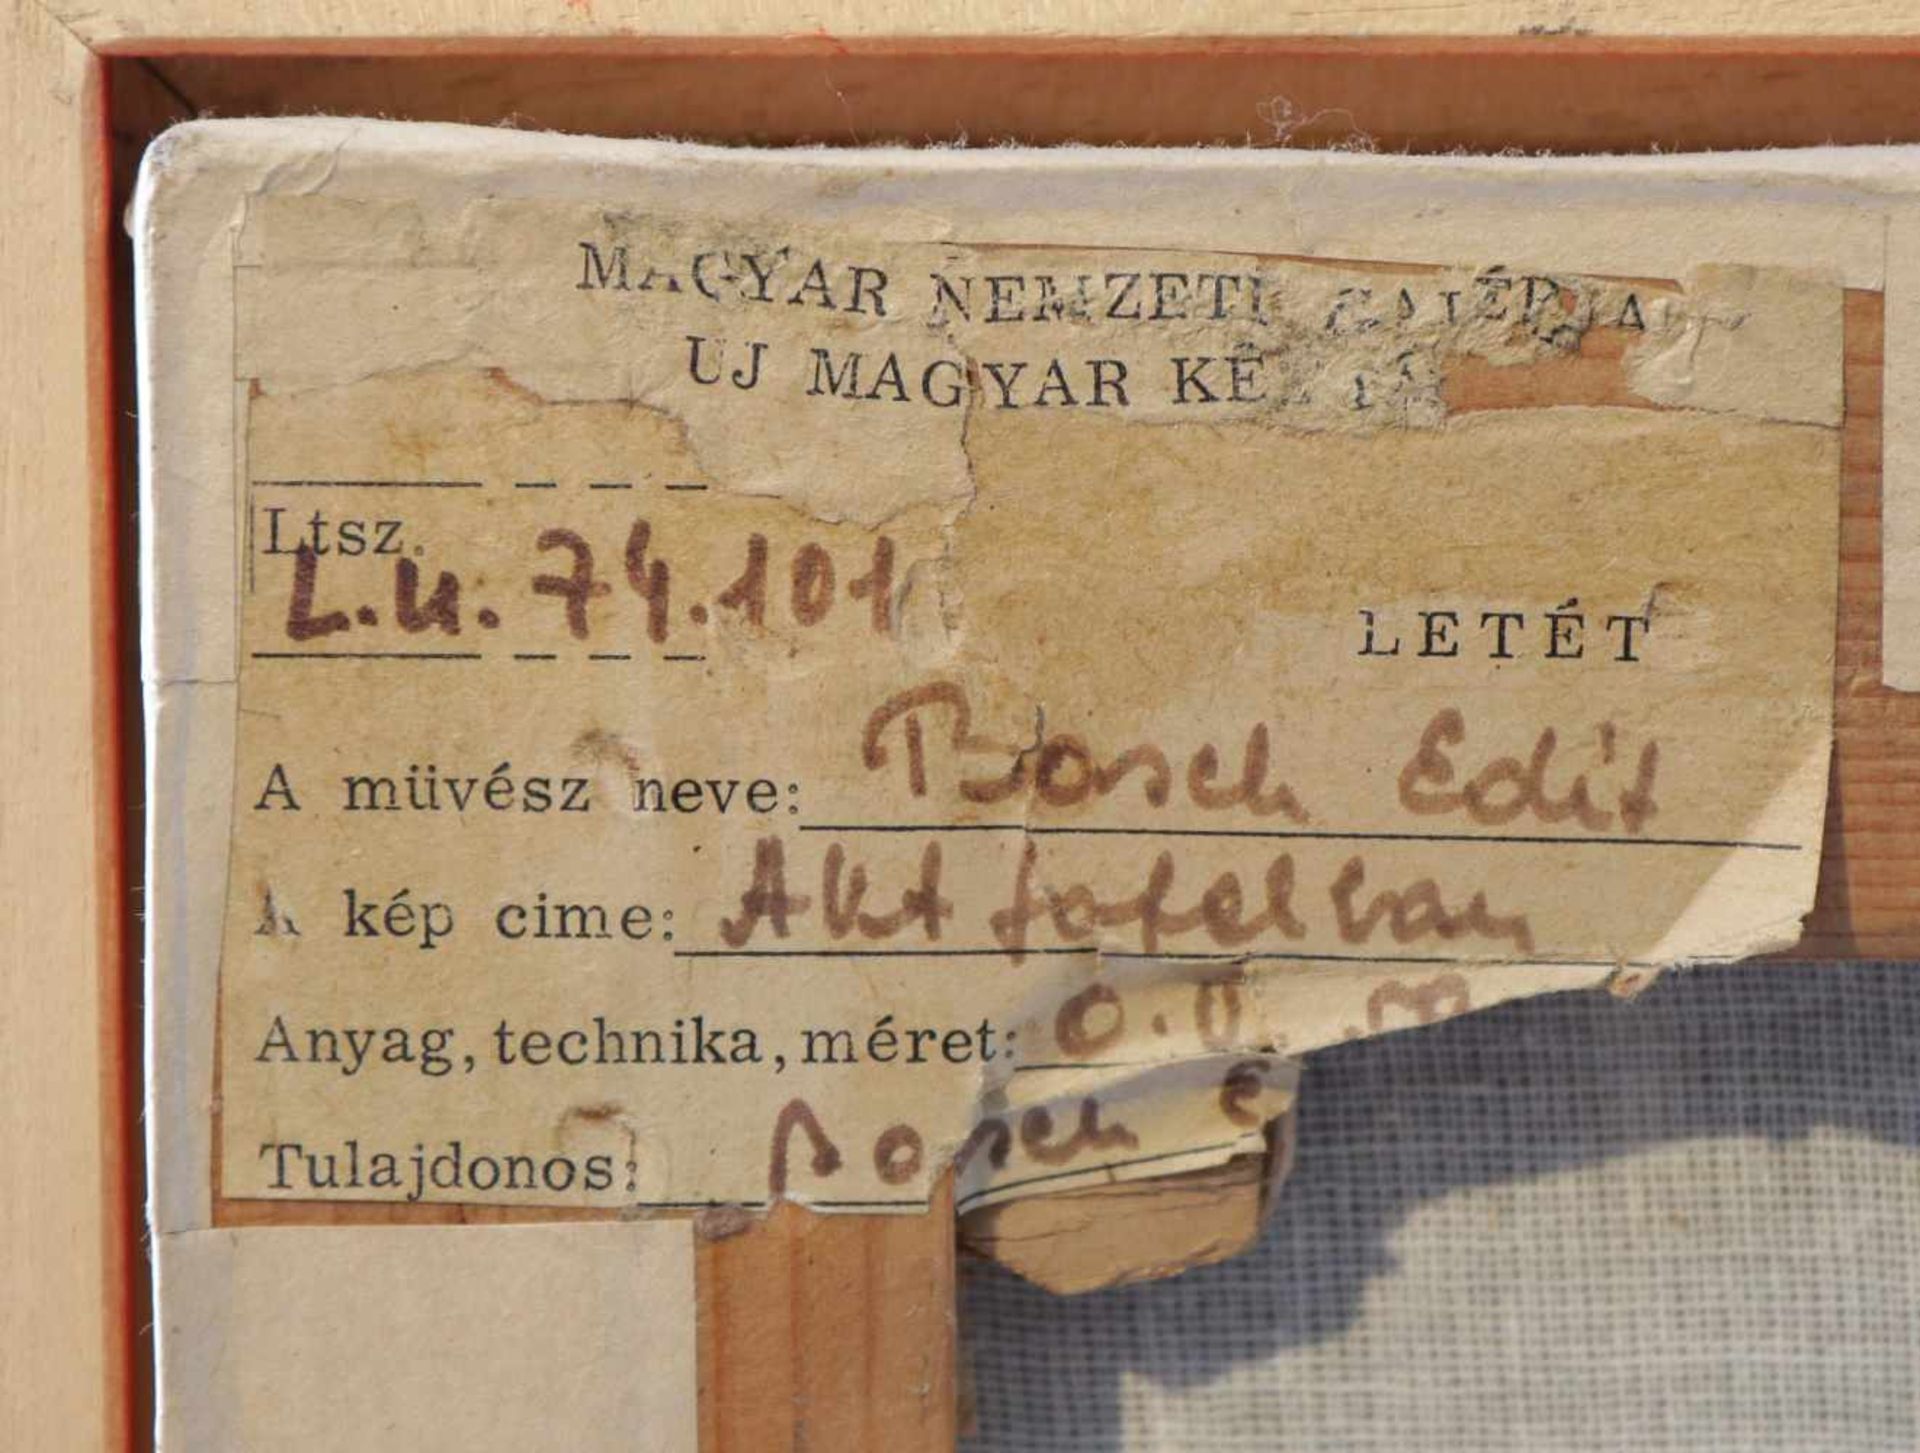 MAGYAR NEMZETI GALÉRIA
UJ MAGYAR KÉPTÁR
Ltsz.
L.U. 74.101
LETÉT
A müvész neve: Basch Edit
A kép cime: Akt fotelban
Anyag, technika, méret: O. V.
Tulajdonos: Basch E